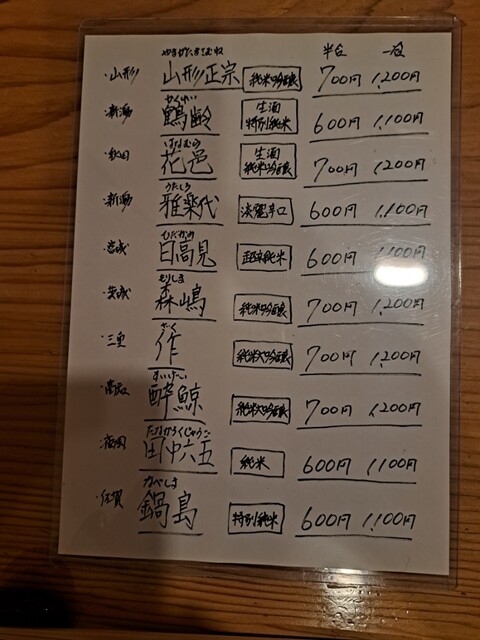 半合 一合
やまがたまさむね
・山形 山形正宗 純米吟醸 700円 1,200円
かくれい
・新潟 鶴齢 生酒 特別純米 600円 1,100円
はなむら
・秋田 花邑 生酒 純米吟醸 700円 1,200円
うたしろ
・新潟 雅楽代 淡麗辛口 600円 1,100円
ひたかみ
・宮城 日高見 超辛純米 600円 1,100円
もりしま
・茨城 森嶋 純米吟醸 700円 1,200円
ざく
・三重 作 純米大吟醸 700円 1,200円
すいげい
・高知 酔鯨 純米大吟醸 700円 1,200円
たなかろくじゅうご
・福岡 田中六五 純米 600円 1,100円
なべしま
・佐賀 鍋島 特別純米 600円 1,100円